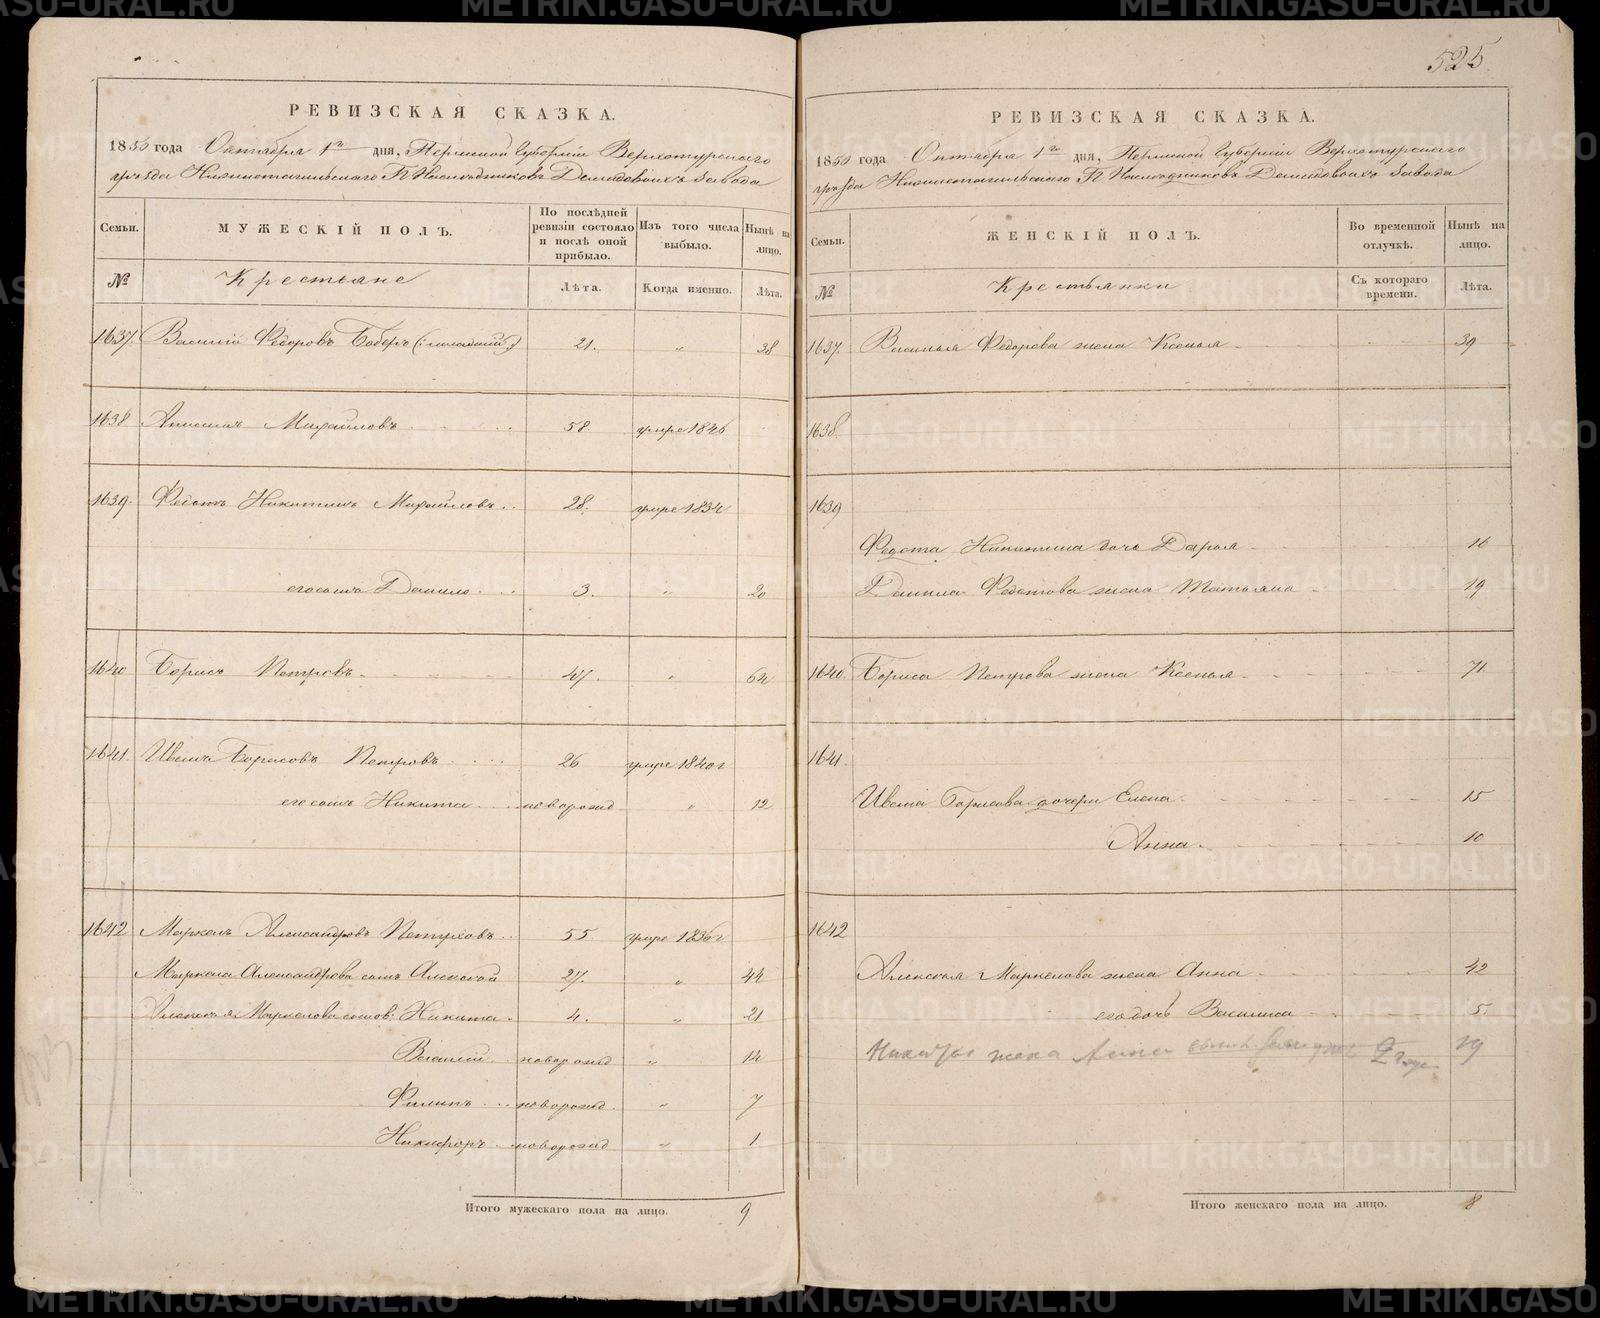 525
РЕВИЗСКАЯ СКАЗКА.
1850 года Октября 1го дня, Пермской Губернии Верхотурского
уѣзда Нижнетагильского Г.г. Наслѣдниковъ Демидовыхъ завода
Семьи. МУЖЕСКІЙ ПОЛЪ. По послѣдней ревизіи состояло и послѣ оной прибыло. Изъ того числа выбыло. Нынѣ на лицо.
№ Крестьяне Лѣта. Когда именно. Лѣта.
1637. Василій Федоровъ Боберъ (:младшій:) 21. „ 38
1638 Михайловъ 58. умре 1846
1639. Федотъ Никитинъ Михайловъ 28. умре 1834
его сынъ Данило 3. „ 20
1640 Борисъ Петровъ 47. „ 64
1641. Иванъ Борисовъ Петровъ 26 умре 1840г
его сынъ Никита новорожд „ 12
1642 Маркелъ Александровъ Петуховъ 55. умре 1836г
Маркела Александрова сынъ Алексѣй 27. „ 44
Алексѣя Маркелова сынов: Никита 4. „ 21
Василій новорожд „ 14
Филипъ новорожд. „ 7
Никифоръ новорожд „ 1
Итого мужескаго пола на лицо. 9
РЕВИЗСКАЯ СКАЗКА.
1850 года Октября 1го дня, Пермской Губернии Верхотурского
уѣзда Нижнетагильского Г.г. Наслѣдниковъ Демидовыхъ завода
Семьи. ЖЕНСКІЙ ПОЛЪ. Во временной отлучкѣ. Нынѣ на лицо.
№ Крестьянки Съ котораго времени. Лѣта.
1637. Василья Федорова жена Ксенья 39
1638.
1639
Федота Никитина дочь Дарья 16
Данила Федотова жена Татьяна 19
1640. Бориса Петрова жена Ксенья 71.
1641.
Ивана Борисова дочери Елена 15
Анна 10
1642
Алексѣя Маркелова жена Анна 42
его дочь Василиса 5
Никиты жена Анна 19
Итого женскаго пола на лицо. 8
METRIKI.GASO-URAL.RU